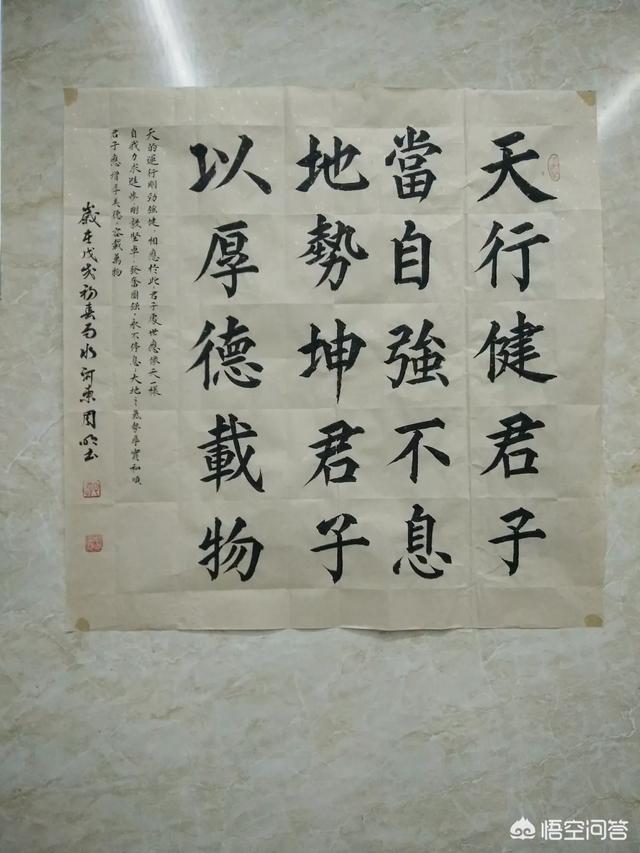 天行健君子
當自強不息
地勢坤君子
以厚德載物
天的運行剛勁強健，相應於此君子處世應像天一樣
自我力求進步剛毅堅卓，發奮圖強，永不停息，大地之氣勢厚實和順
君子應增厚美德，容載萬物
歲在戊戌初春雨水河東周書
悟空问答